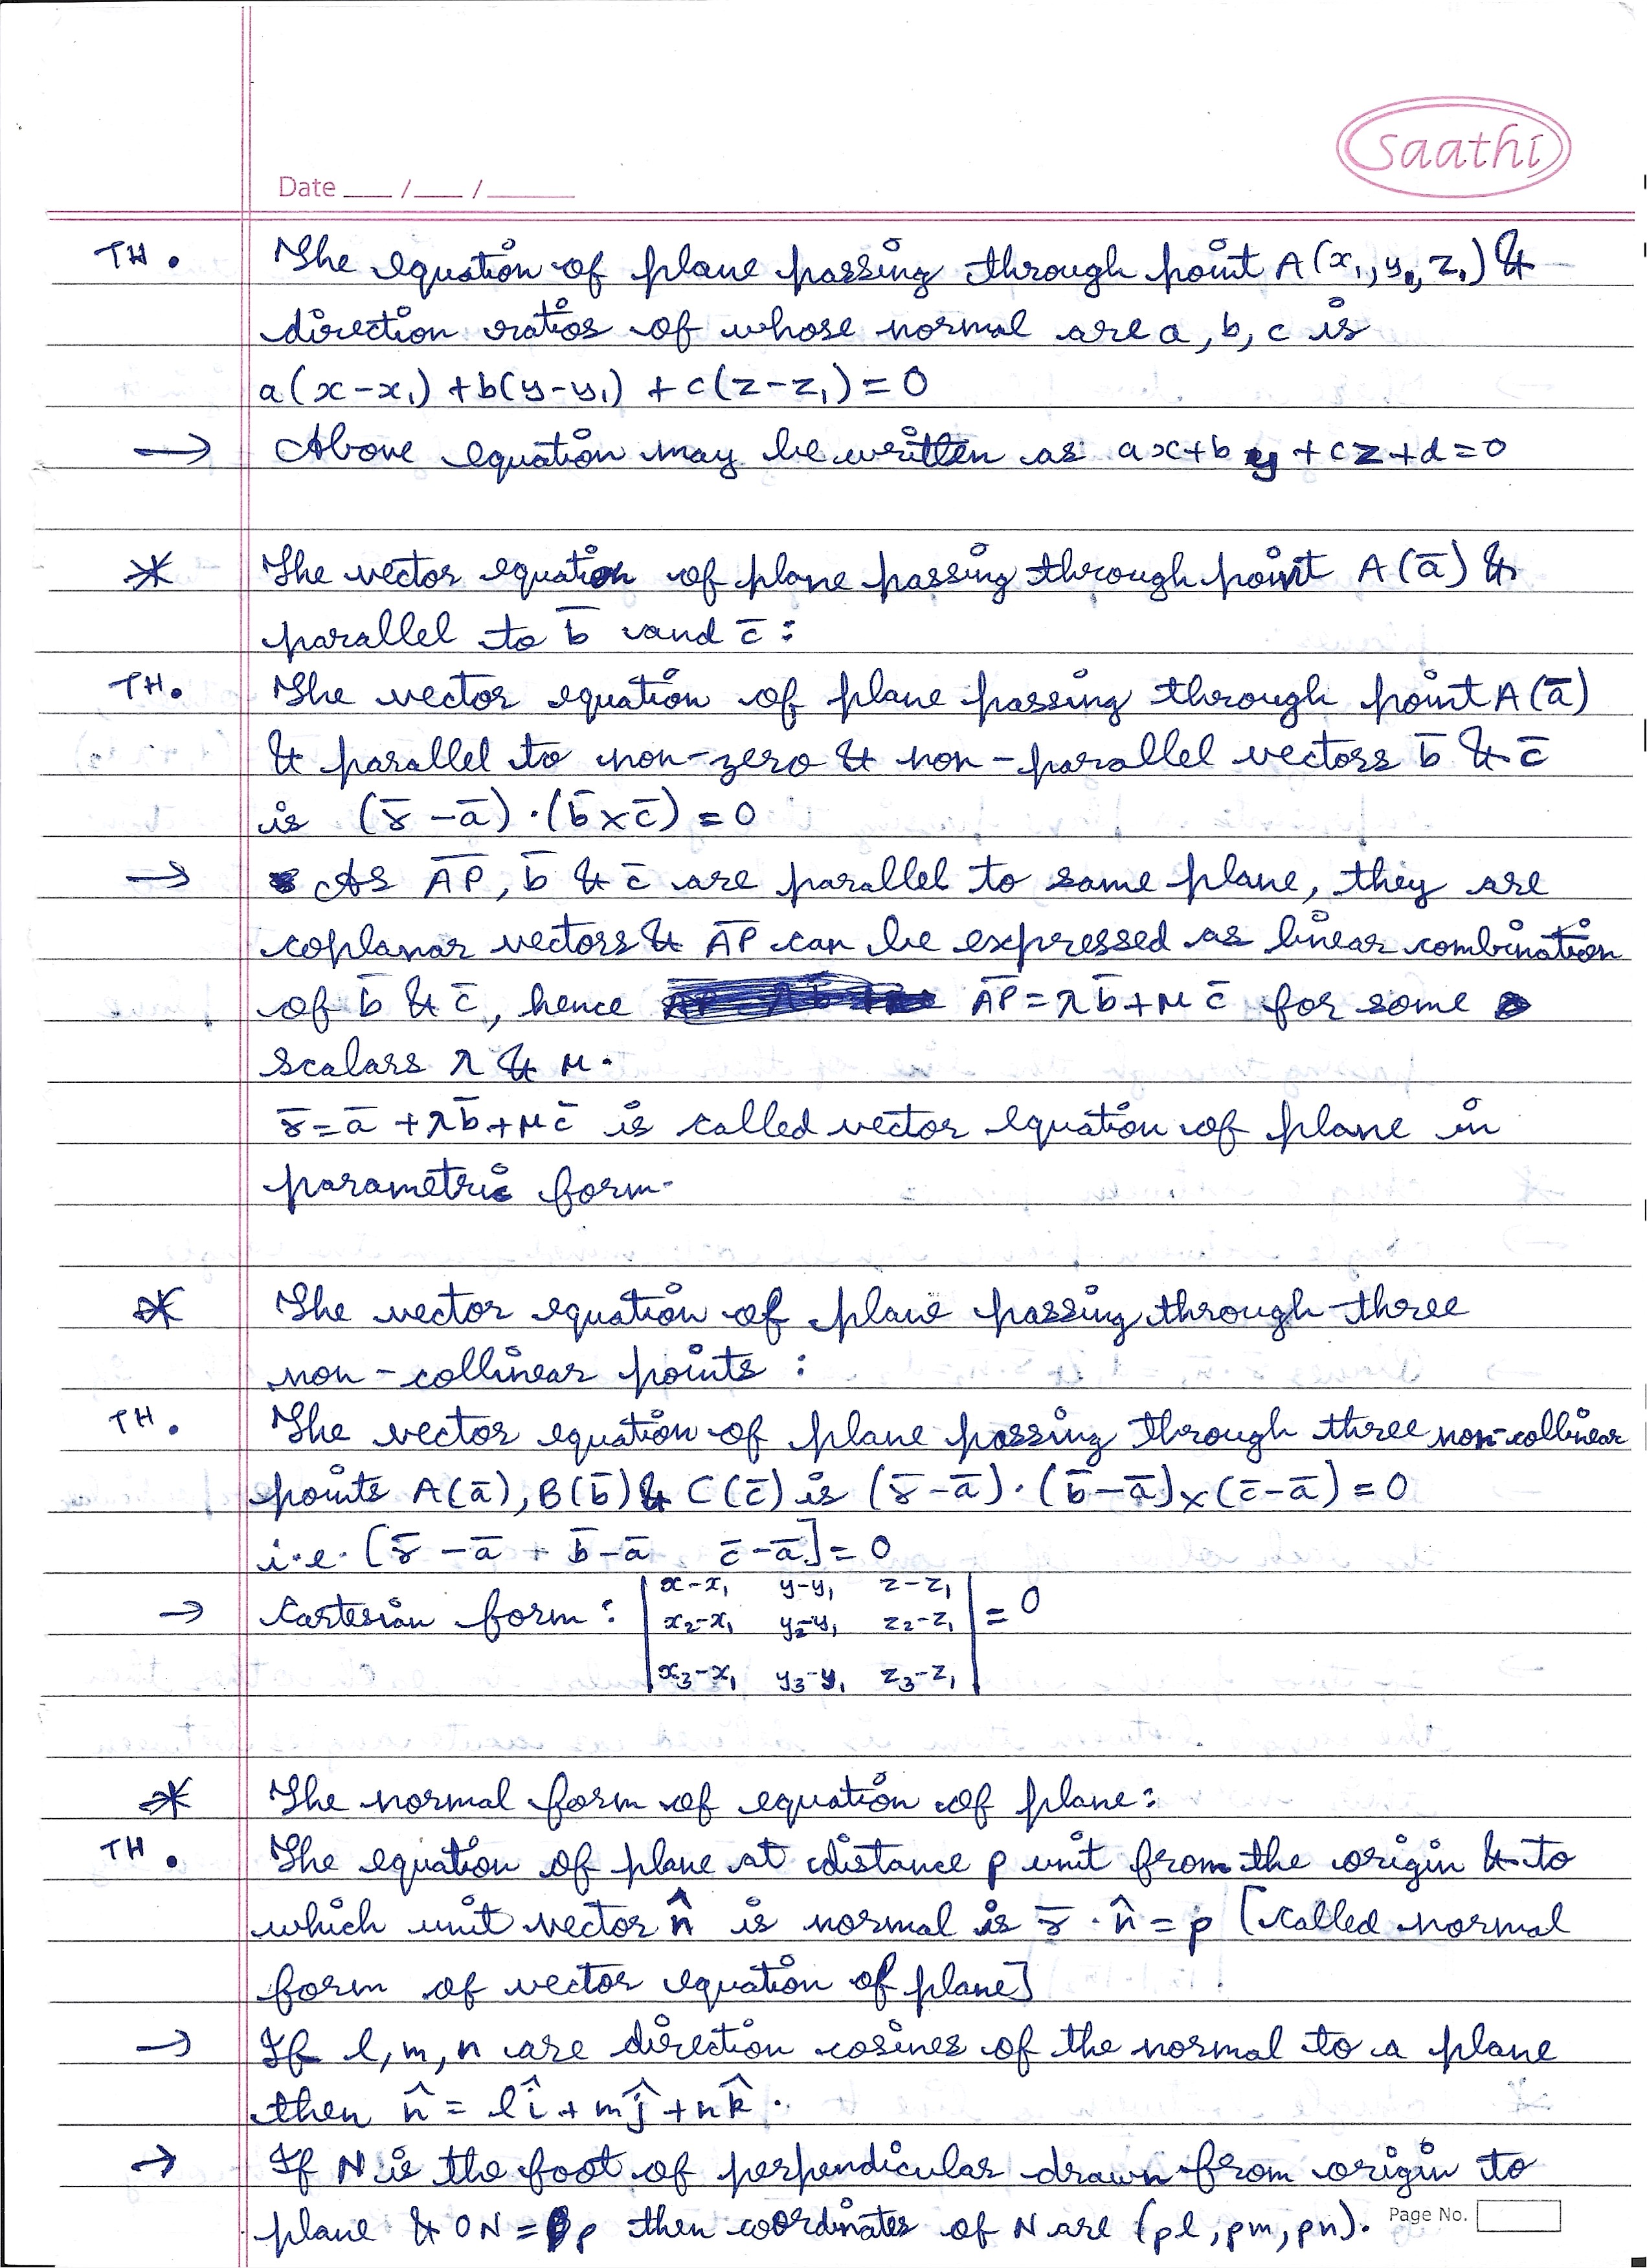 saathi
Date ___ / ___ / ______
TH. The equation of plane passing through point A(x₁, y₁, z₁) &
direction ratios of whose normal are a, b, c is
a(x-x₁) + b(y-y₁) + c(z-z₁) = 0
→ Above equation may be written as ax+by+cz+d=0
* The vector equation of plane passing through point A(ā) &
parallel to b̄ and c̄ :
TH. The vector equation of plane passing through point A(ā)
& parallel to non-zero & non-parallel vectors b̄ & c̄
is (r̄ - ā) · (b̄ × c̄) = 0
→ As A̅P̅, b̄ & c̄ are parallel to same plane, they are
coplanar vectors & A̅P̅ can be expressed as linear combination
of b̄ & c̄, hence A̅P̅ = λb̄ + μc̄ for some
scalars λ & μ.
r̄ = ā + λb̄ + μc̄ is called vector equation of plane in
parametric form.
* The vector equation of plane passing through three
non-collinear points :
TH. The vector equation of plane passing through three non-collinear
points A(ā), B(b̄) & C(c̄) is (r̄-ā) · (b̄-ā) × (c̄-ā) = 0
i.e. [r̄ - ā + b̄ - ā c̄ - ā] = 0
→ Cartesian form : | x-x₁ y-y₁ z-z₁ |
| x₂-x₁ y₂-y₁ z₂-z₁ | = 0
| x₃-x₁ y₃-y₁ z₃-z₁ |
* The normal form of equation of plane :
TH. The equation of plane at distance p unit from the origin & to
which unit vector n̂ is normal is r̄ · n̂ = p [called normal
form of vector equation of plane]
→ If l, m, n are direction cosines of the normal to a plane
then n̂ = lî + mĵ + nk̂.
→ If N is the foot of perpendicular drawn from origin to
plane & ON = p then coordinates of N are (pl, pm, pn).
Page No.